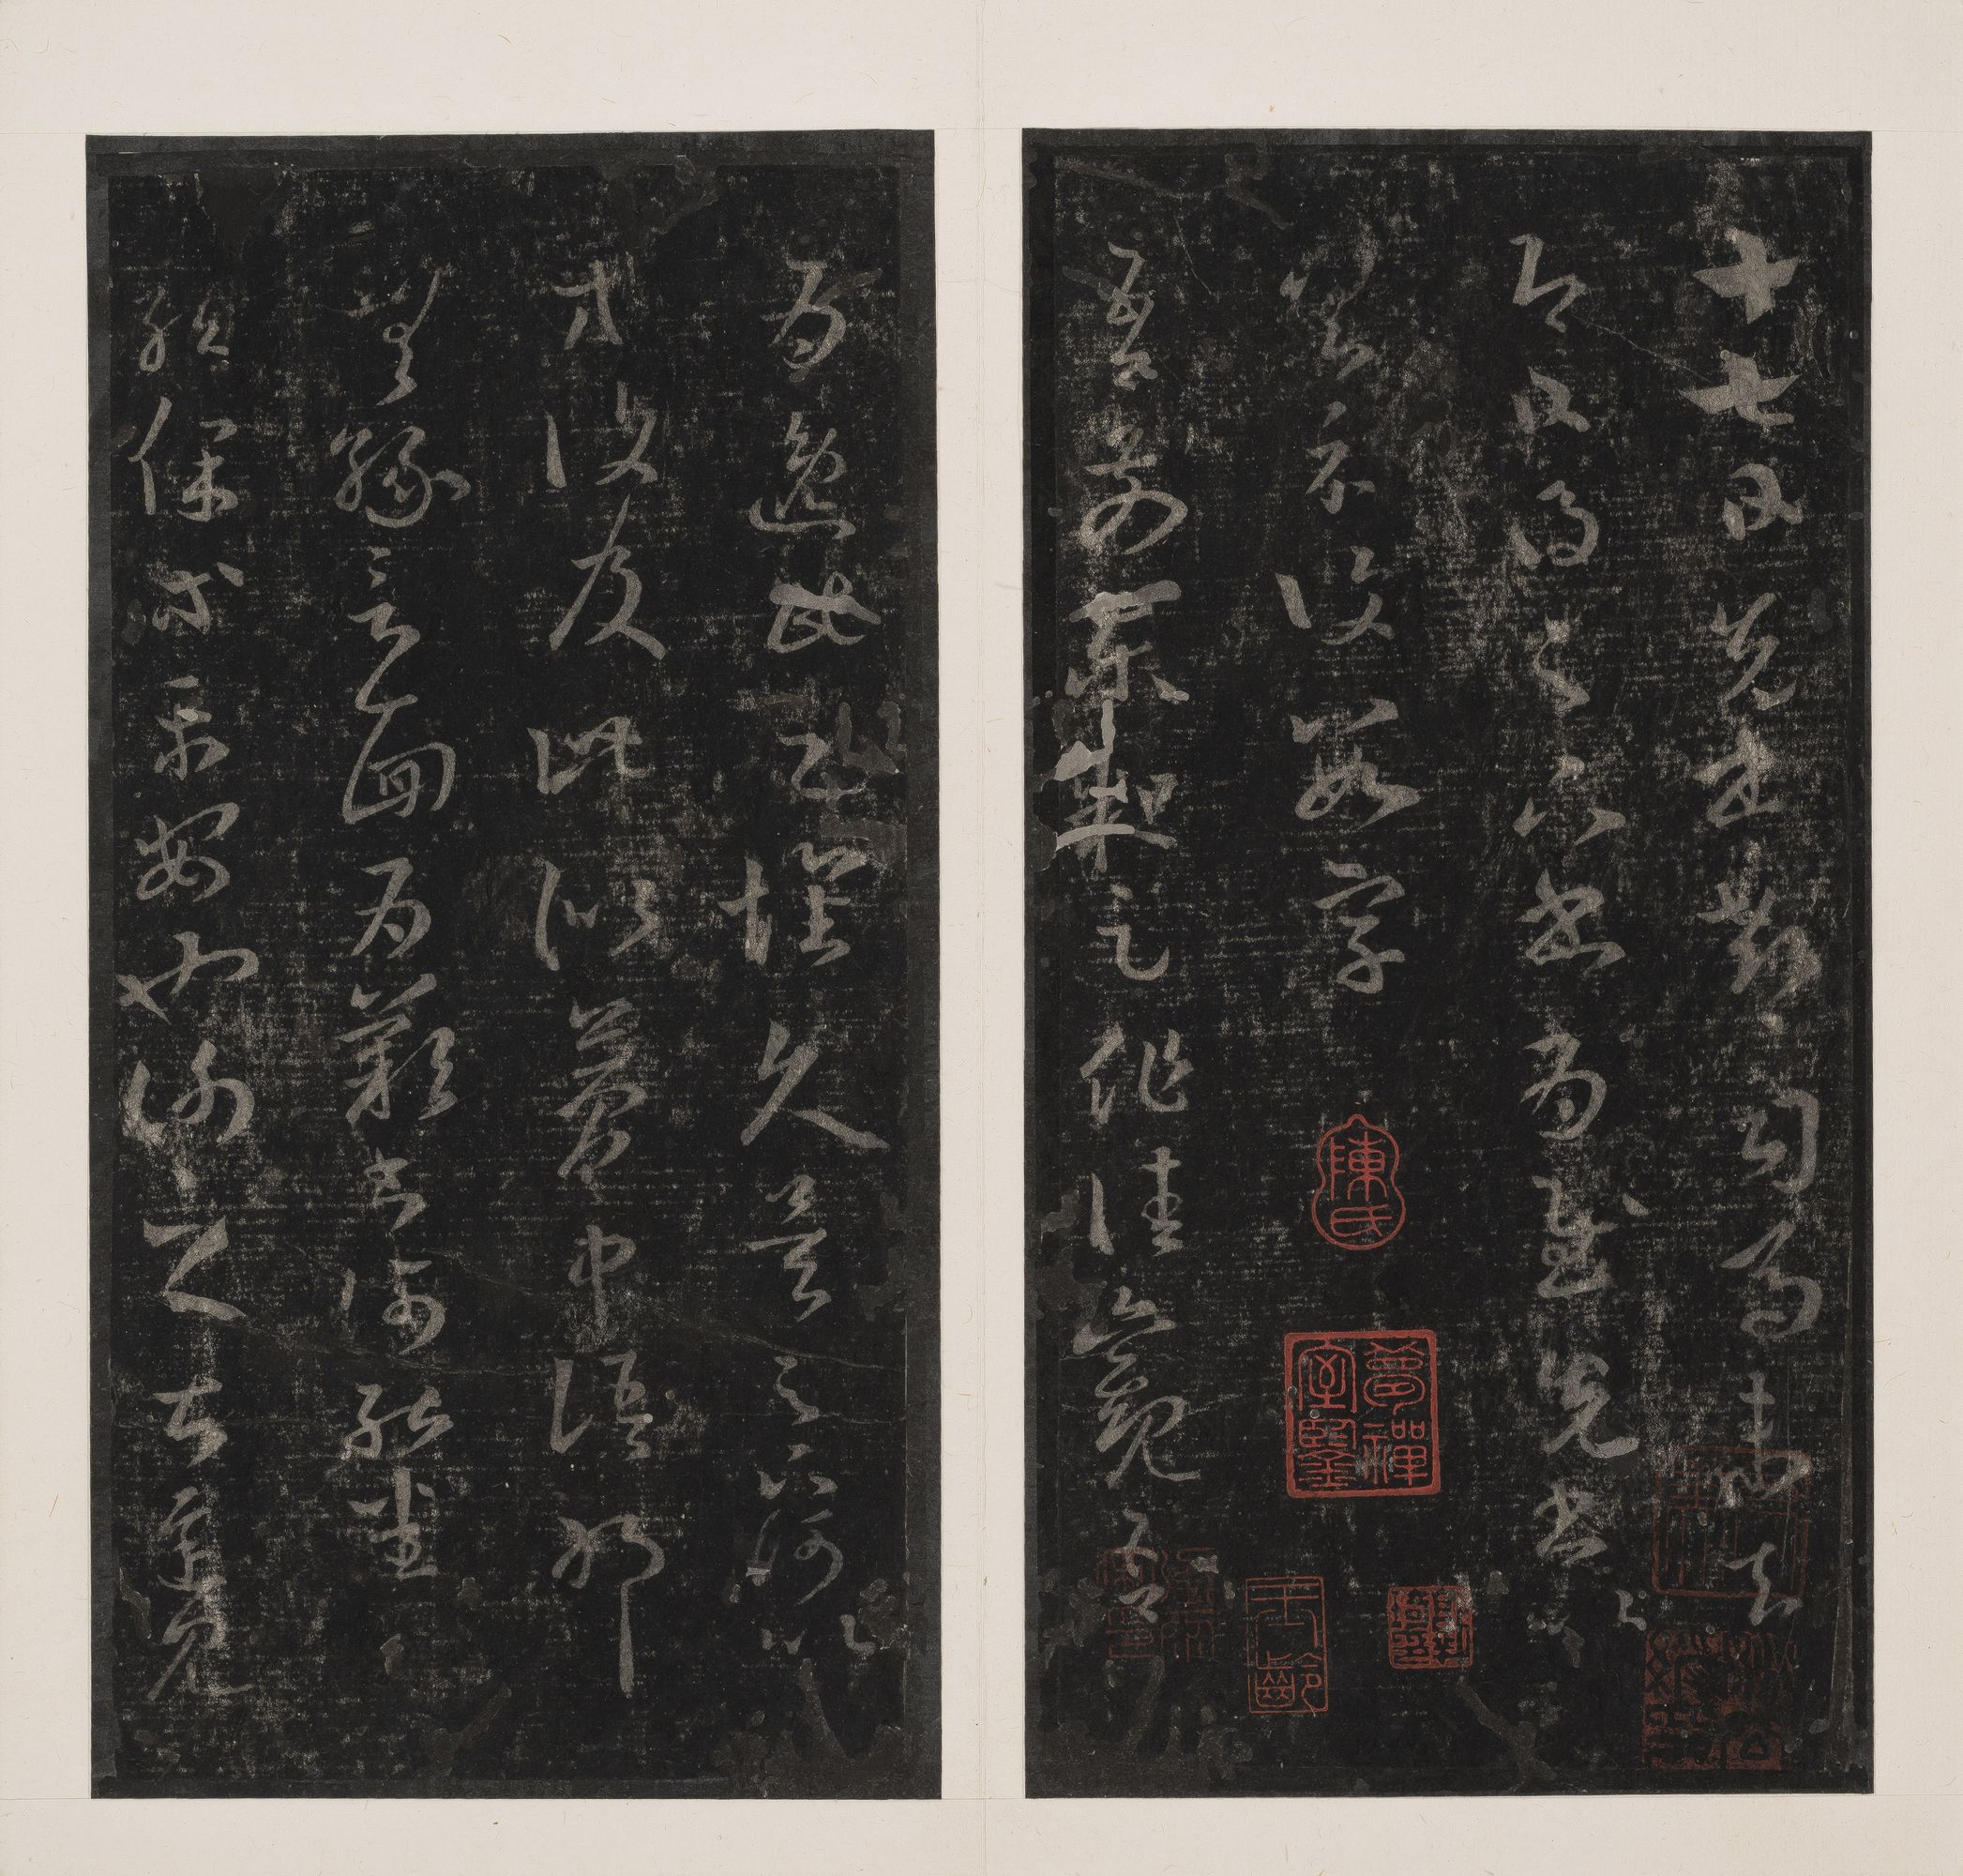 十七日先書郗司馬未去
即日得足下書為慰先書以
具示復數字
吾前東粗足作佳觀吾
為逸民之懷久矣足下何以
方復及此似夢中語耶
無緣言面為歎書何能悉
龍保等平安也謝之甚遲見
陳氏
夢禪室鑒